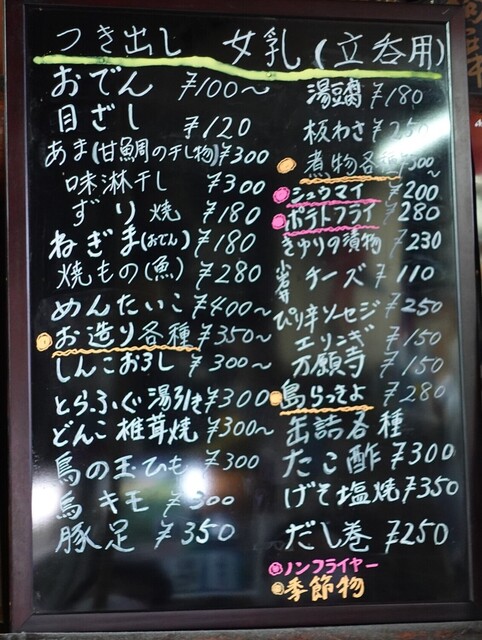 つき出し 女乳(立呑用)
おでん ¥100〜
目ざし ¥120
あま(甘鯛の干し物) ¥300
味淋干し ¥300
ずり焼 ¥180
ねぎま(おでん) ¥180
焼もの(魚) ¥280
めんたいこ ¥400〜
お造り各種 ¥350〜
しんこおろし ¥300〜
とらふぐ湯引き ¥300
どんこ椎茸焼 ¥300〜
鳥の玉ひも ¥300
鳥キモ ¥300
豚足 ¥350
湯豆腐 ¥180
板わさ ¥250
煮物各種 ¥300〜
シュウマイ ¥200
ポテトフライ ¥280
きゅりの漬物 ¥230
チーズ ¥110
ぴり辛ソーセジ ¥250
エリンギ ¥150
万願寺 ¥150
島らっきよ ¥280
缶詰各種
たこ酢 ¥300
げそ塩焼 ¥350
だし巻 ¥250
ノンフライヤー
季節物